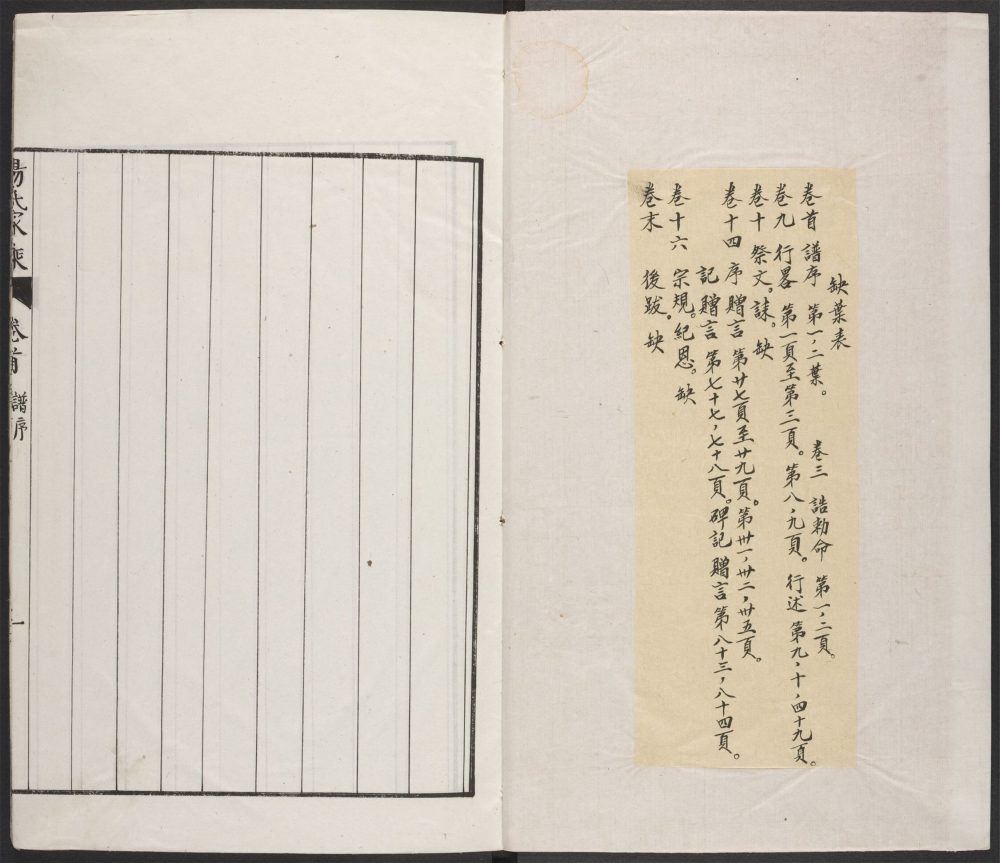 缺葉表
卷首　譜序　第一，二葉。　卷三　誥勅命　第一，二頁。
卷九　行畧　第一頁至第三頁。第八，九頁。行述　第九，十，四十九頁。
卷十　祭文。誄。缺
卷十四　序　贈言　第廿七頁至廿九頁。第卅一，卅二，卅五頁。
記　贈言　第七十七，七十八頁。碑記　贈言　第八十三，八十四頁。
卷十六　宗規。紀恩。缺
卷末　後跋。缺
氏家乘　卷首　譜序　一